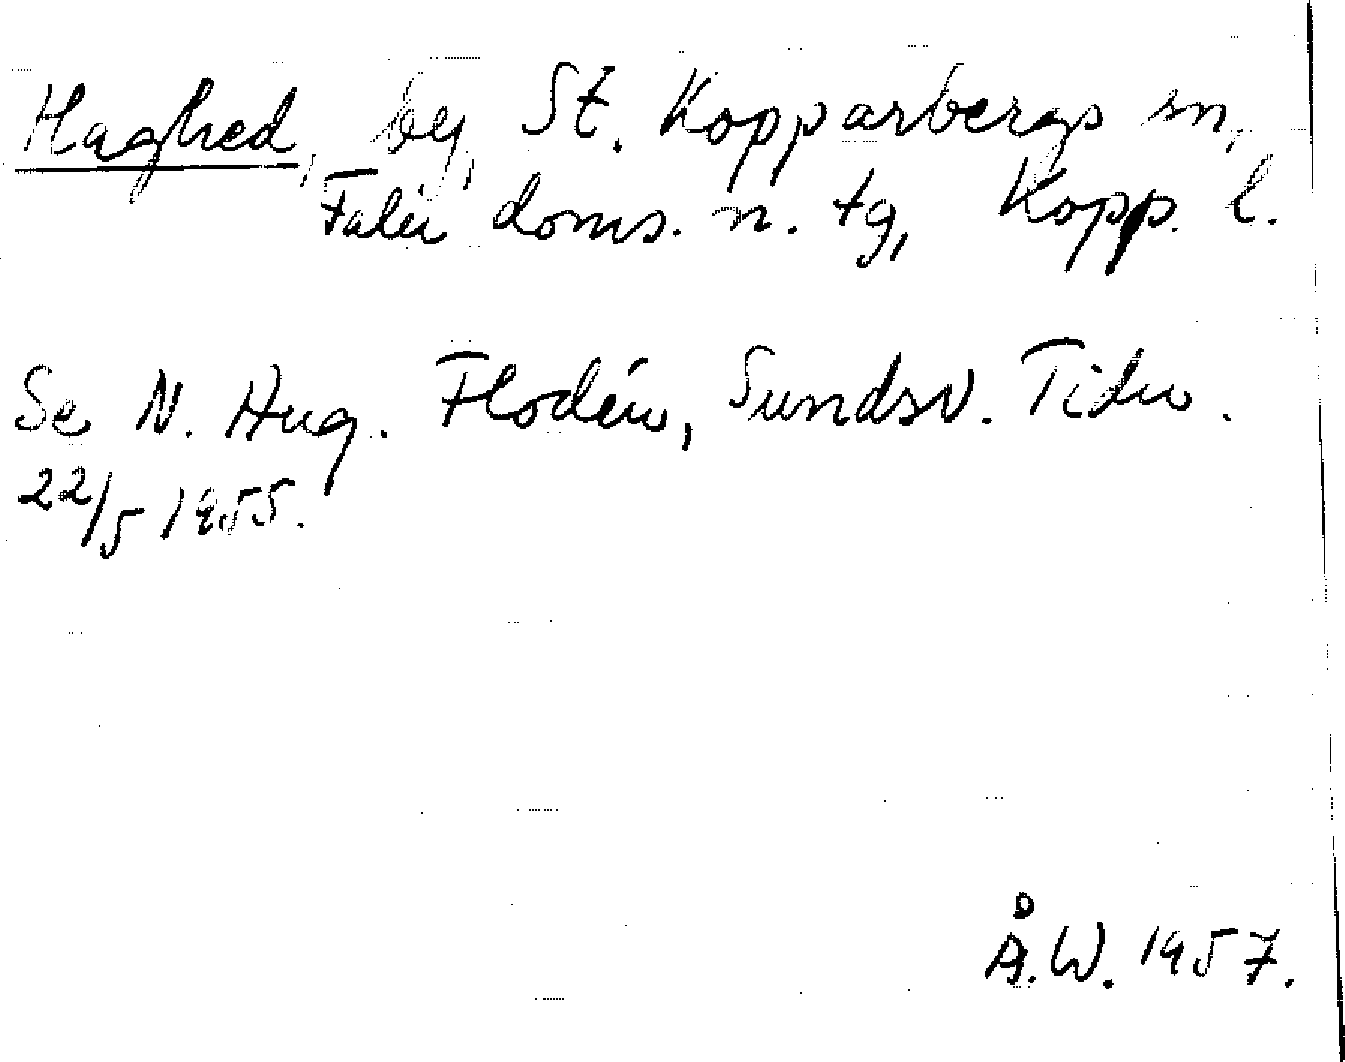 Haghed, by, St. Kopparbergs sn,
Falu doms. n. tg, Kopp. l.
Se N. Hug. Flodén, Sundsv. Tidn.
22/5 1955.
Å.W. 1957.